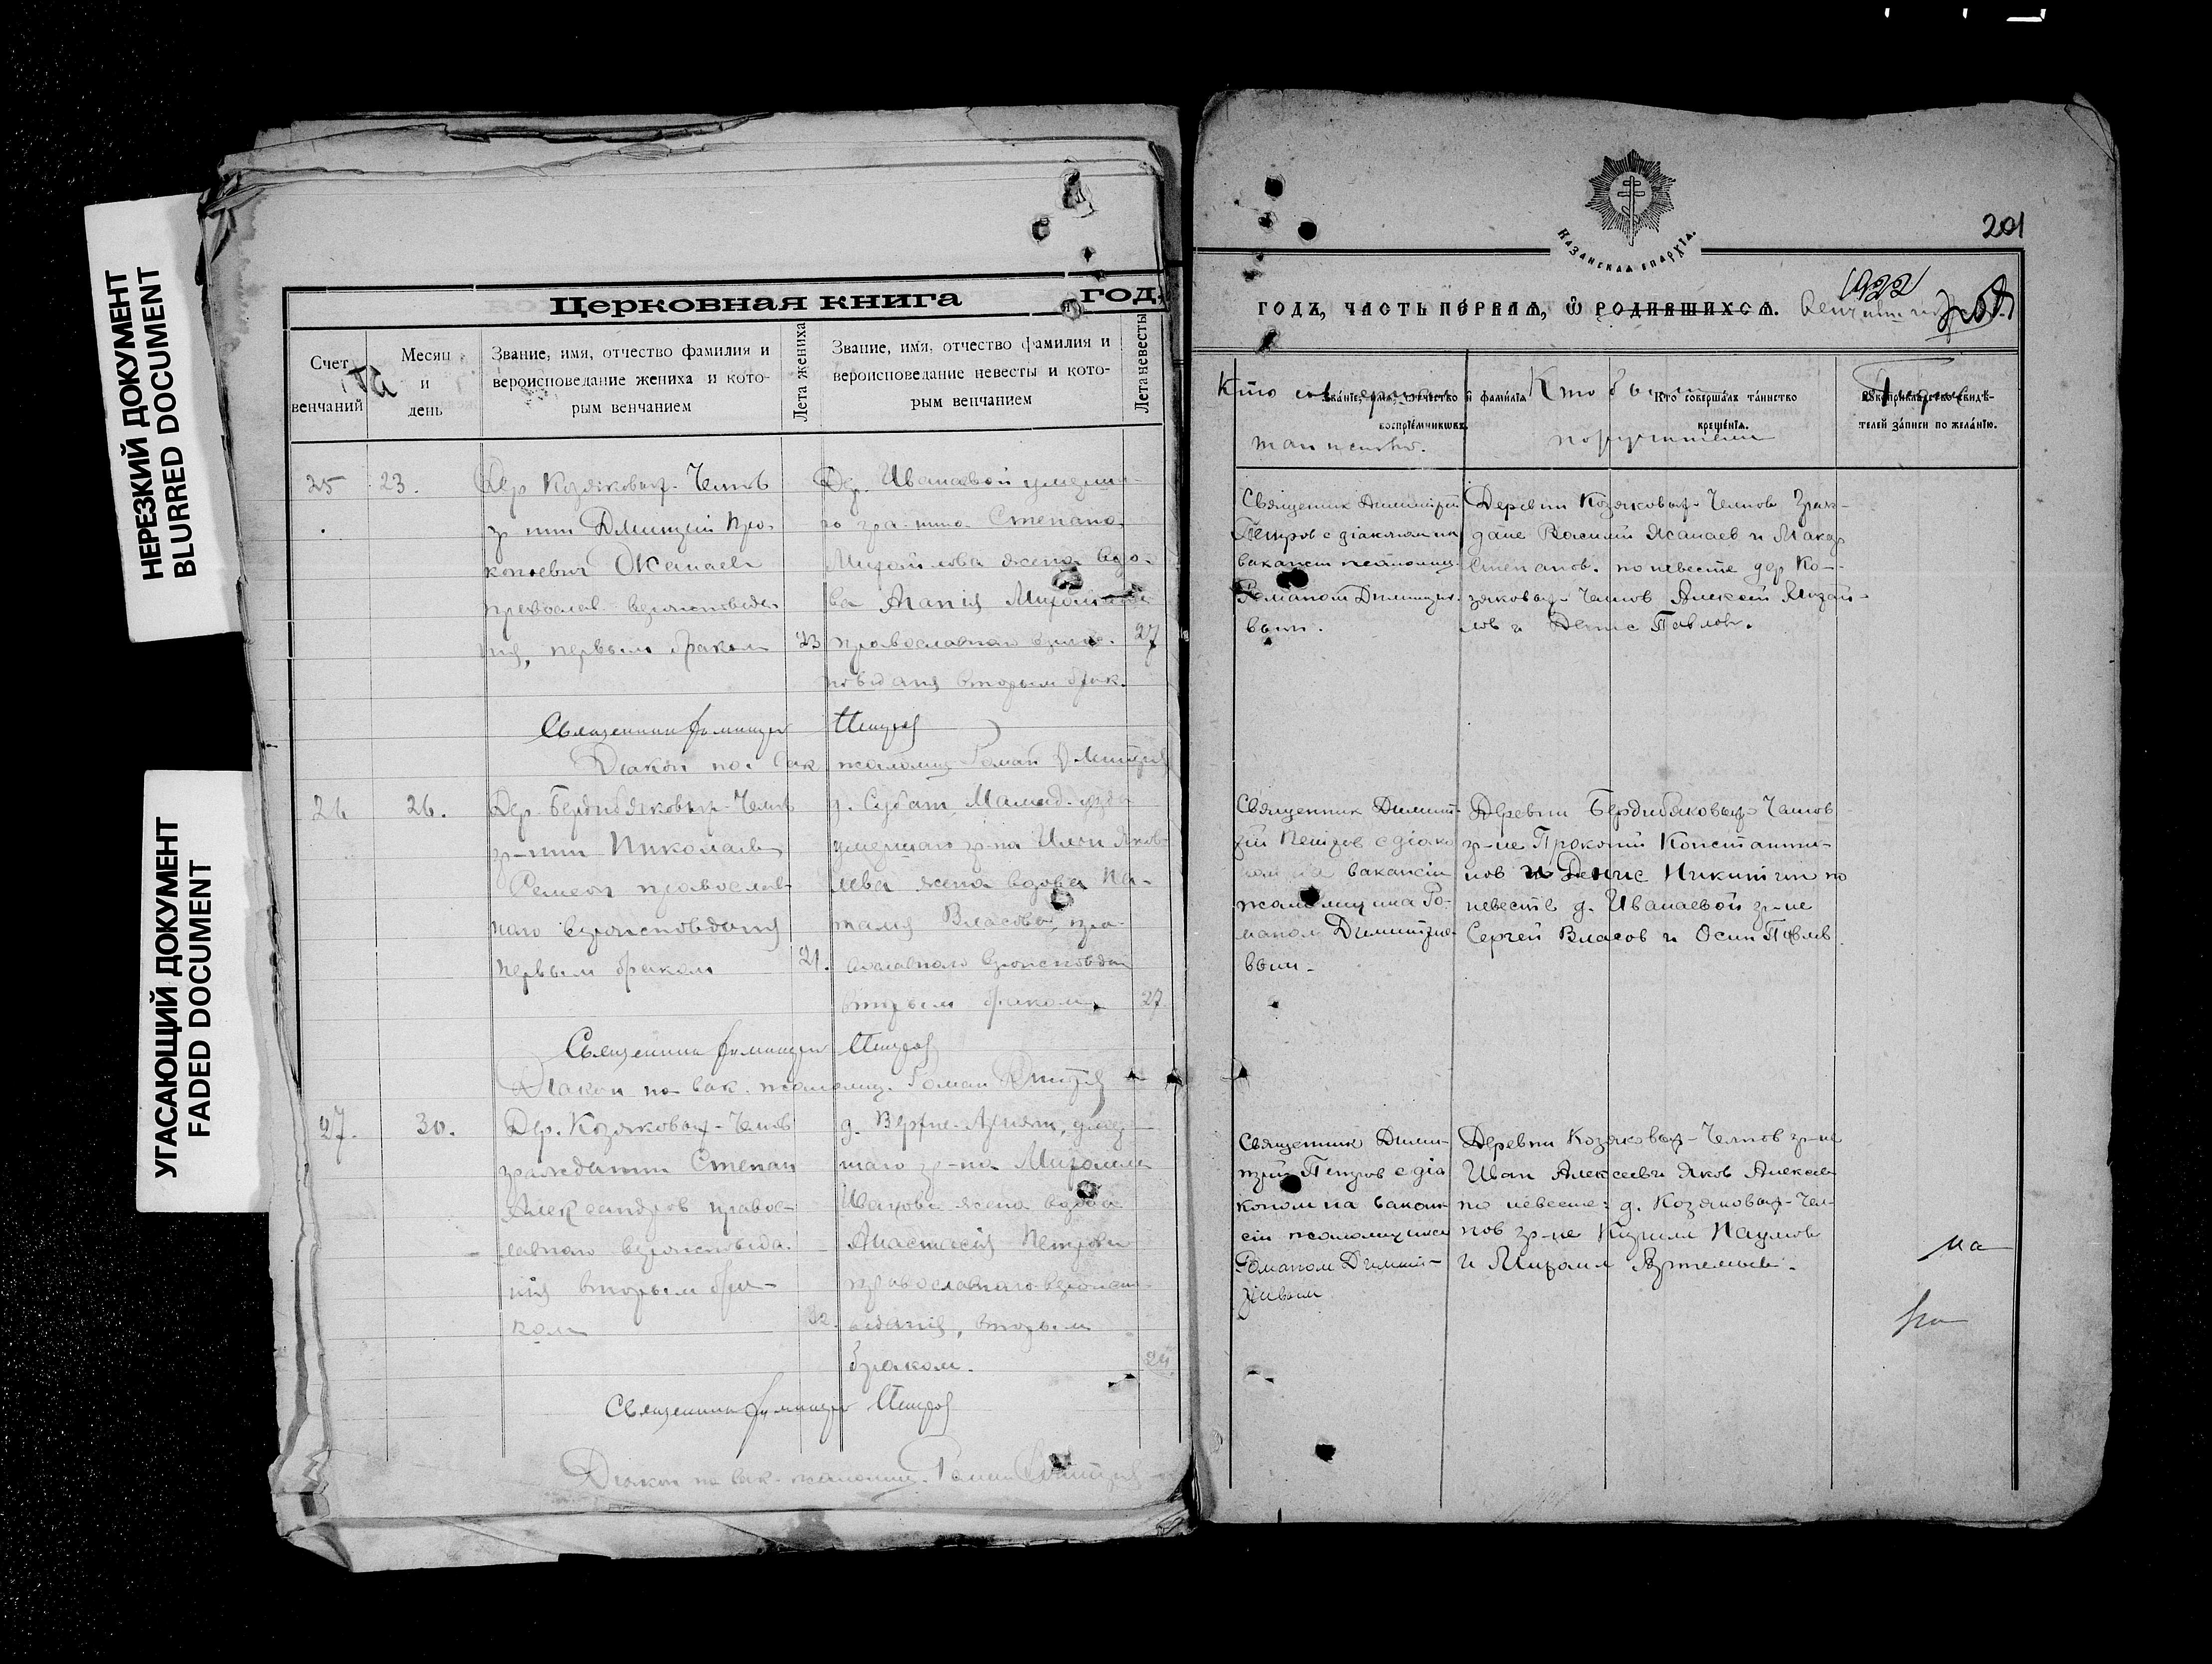 НЕРЕЗКИЙ ДОКУМЕНТ
BLURRED DOCUMENT
УГАСАЮЩИЙ ДОКУМЕНТ
FADED DOCUMENT
Церковная книга год.
Счет венчаний
Месяц и день
Звание, имя, отчество фамилия и вероисповедание жениха и кото-
рым венчанием
Лета жениха
Звание, имя, отчество фамилия и вероисповедание невесты и кото-
рым венчанием
Лета невесты
25
23.
Дер Козяковых-Челнов
гр-нин Димитрий Про-
копиевич Жанаев
православ. вероисповеда
ния, первым браком
23
Дер. Иванаевой умерша-
го гра-нина Степана
Михайлова жена вдо-
ва Агапия
православнаго
27
поведания вторым брак.
Священник Димитрий Петров
Диакон на вак псаломщ Роман Дмитриев
26
26.
Дер. Бердибяковых-Челнов
гр-нин Николаев
Семеон православ-
наго вероисповедания
первым браком
21.
д. Субаш Мамад. уезда
умершаго гр-на Илии Яков-
лева жена вдова На-
талия Власова, пра-
вославнаго вероисповедан
вторым браком,
27
Священник Димитрий Петров
Диакон на вак. псаломщ. Роман Дмитриев
27.
30.
Дер. Козяковых-Челнов
гражданин Степан
Александров правос-
лавнаго вероисповеда-
ния вторым бра-
ком
32.
умер-
шаго гр-на Михаила
Иванова жена вдова
Анастасия Петрова
православнаго вероисп-
ведания, вторым
браком.
24
Священник Димитрий Петров
Диакон на вак. псаломщ. Роман Дмитриев
КАЗАНСКАЯ ЕПАРХІЯ.
201
1922
ГОДЪ, ЧАСТЬ ПЕРВАЯ, Ѡ РОДИВШИХСЯ.
Кто совершал
таинство.
Званіе, имя, отчество и фамилія
воспріемниковъ.
Кто были
поручители
Кто совершалъ таинство
крещенія.
Рукоприкладство свидѣ-
телей записи по желанію.
Священник Димитрій
Петров с діаконом на
вакансіи псаломщ.
Романом Димитріе-
вым.
Деревни Козяковых-Челнов граж-
дане Василий Жанаев и Макар
Степанов. по невесте дер Ко-
зяковых-Челнов Алексей Михай-
лов и Денис Павлов.
Священник Димит-
рій Петров с діако
ном на вакансіи
псаломщика Ро-
маном Димитріе-
вым.
Деревни Бердибяковых-Челнов
гр-не Прокопий Константи-
нов и Денис Никитин по
невесте д. Иванаевой гр-не
Сергей Власов и Осип Павлов.
Священник Дими-
трій Петров с діа
коном на вакан-
сіи псаломщика
Романом Димит-
ріевым
Деревни Козяковых-Челнов гр-не
Иван Алексеев и Яков Алексеев
по невесте: д. Козяковых-Чел-
нов гр-не Кирилл Наумов
и Михаил Артемьев.